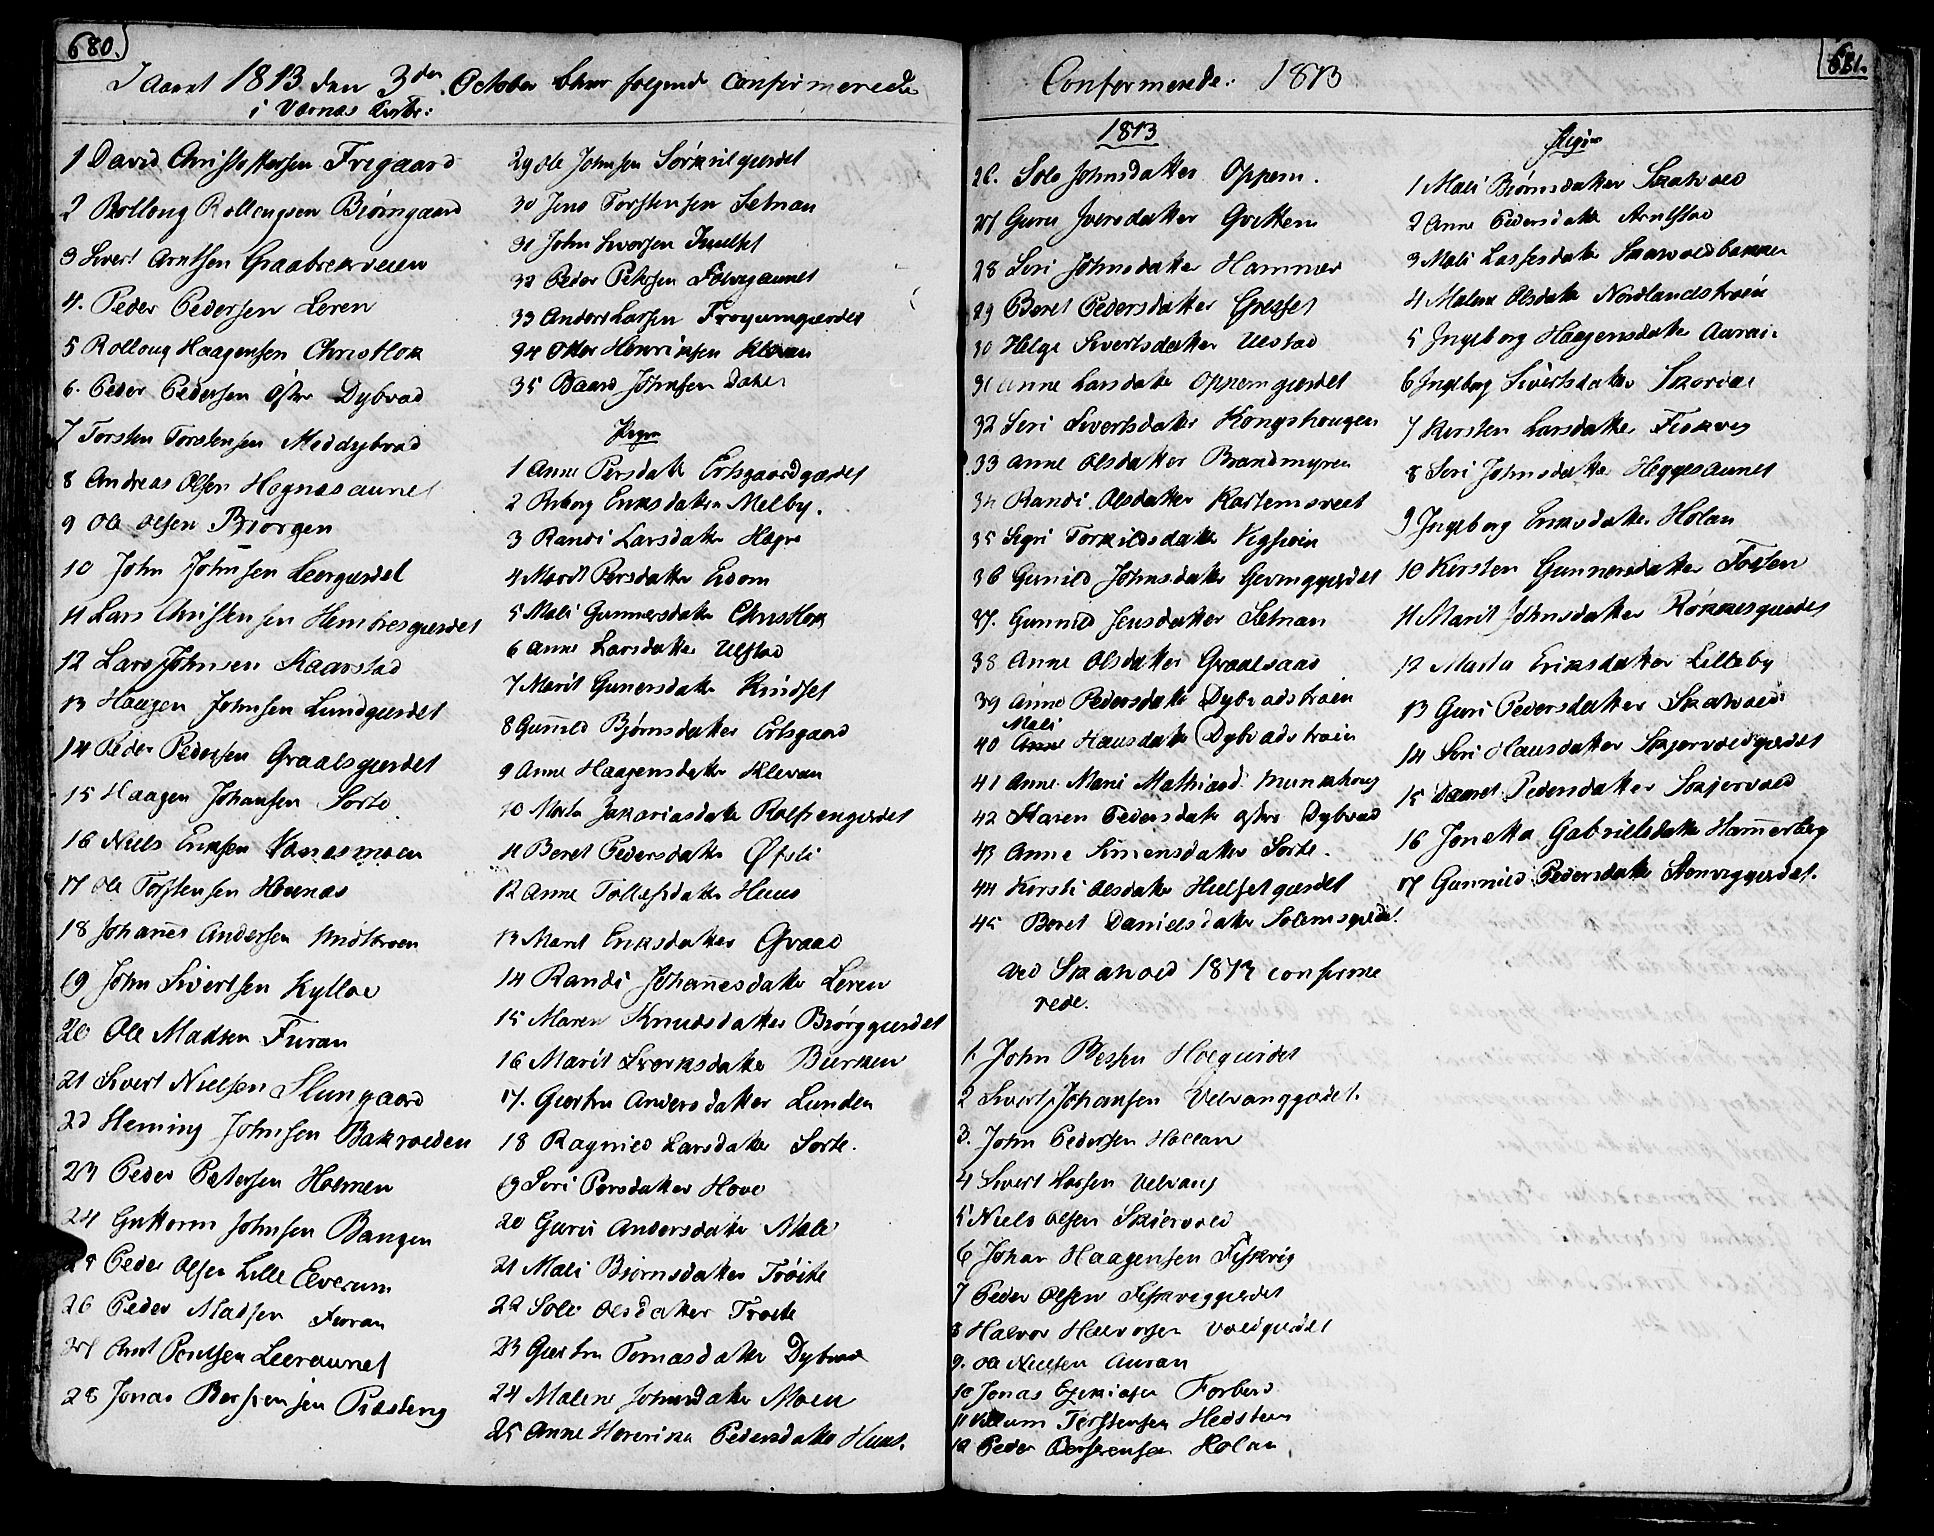 680.
I Aaret 1813 den 3den October blew følgende confirmerede
i Værnes Kirke:
1 David Christophersen Frigaard
2 Rolloug Rollougsen Biørngaard
3 Sivert Arntsen Graabrekveien
4. Peder Pedersen Leren
5 Rolloug Haagensen Christlok
6. Peder Pedersen Østre Dybvad
7 Torsten Torstensen Meddybvad
8 Andreas Olsen Hognesaunet
9 Ole Olsen Biørgen
10 John Johnsen Leergierdet
11 Lars Christensen Hembresgierdet
12 Lars Johnsen Kaarstad
13 Haagen Johnsen Lundgierdet
14 Peder Pedersen Graalsgierdet
15 Haagen Johansen Sorte
16 Niels Eriksen Værnesmoen
17 Ole Torstensen Hoenæs
18 Johañes Andersen Midtbroen
19 John Sivertsen Kylloe
20 Ole Madsen Furan
21 Sivert Nielsen Slungaard
22 Heming Johnsen Bakvolden
23 Peder Petersen Holmen
24 Guttorm Johnsen Bangen
25 Peder Olsen Lille Elverum
26 Peder Madsen Furan
27 Arnt Pentsen Leeraunet
28 Jonas Bersvensen Præsteng
29 Ole Johnsen Sørkilgierdet
30 Jens Torstensen Setnan
31 John Ivorsen Hielset
32 Peder Petersen
33 Anders Larsen
34 Henriksen Klevan
35 Baard Johnsen
Piger
1 Anne Persdatter Ertsgaardgierdet
2 Eriksdatter Melby.
3 Randi Larsdatter Hegre
4 Marit Persdatter
5 Mali Gunnersdatter Christlok
6 Anne Larsdatter Ulstad
7 Marit Gunersdatter Kindset
8 Guñild Bjørnsdatter Ertsgaard
9 Anne Haagensdatter Klevan
10 Marta Zakariasdatter Rolfsengierdet
11 Beret Pedersdatter Øfsti
12 Anne Tollefsdatter Huus
13 Marit Eriksdatter Graad
14 Randi Johañesdatter Leren
15 Maren Knudsdatter Biørggierdet
16 Marit Siverksdatter Birken
17. Giertru Andersdatter Lunden
18 Ragnild Larsdatter Sorte.
19 Siri Persdatter Hove
20 Guru Andersdatter Mæle
21 Mali Biørnsdatter Trøite
22 Soli Olsdatter Trøite
23 Giertru Tomasdatter Dybvad
24 Malene Johnsdatter Moen
25 Anne Henrika Pedersdatter Huus.
681.
Confermerede: 1813
1813
26. Solo Johnsdatter Oppem.
27 Guru Iversdatter
28 Siri Johnsdatter Hammer
29 Beret Pedersdatter Græsset
30 Helge Sivertsdatter Uelstad
31 Anne Larsdatter Oppemgierdet
32 Siri Sivertsdatter Kongshougen
33 Anne Olsdatter Brandmyren
34 Randi Olsdatter Kartemsveet
35 Sigri Torkildsdatter
36 Gunild Johnsdatter Gevinggierdet
37. Gunnild Jensdatter Setnan
38 Anne Olsdatter Graalsaas
39 Anne Pedersdatter Dybvadstrøen
Mali
40 Anne Hansdatter Dybvadstrøen
41 Anne Marie Mathiasd. Munkhoug
42 Karen Pedersdatter Østre Dybvad
43 Anne Simensdatter Sorte.
44 Kirsti Olsdatter Hielsetgierdet
45 Beret Danielsdatter Solemsgierdet.
Ved Skatvold 1813 confirme
rede.
1. John Pehsen Holgierdet
2 Sivert Johansen Velvanggierdet.
3. John Pedersen Hollan
4 Sivert Larsen Velvang
5 Niels Olsen Skiervold
6 Johan Haagensen Fiskvig
7 Peder Olsen Fiskviggierdet
8 Halvor Halvorsen Voldgierdet
9. Ole Nielsen Auran
10 Jonas Ezekiasen Forbord
11 Villum Torstensen Hedstien
12 Peder Bersvensen Holan
Piger
1 Mali Biørnsdatter Skatvold
2 Anne Pedersdatter Arntstad
3 Mali Lassesdatter Skatvoldbakken
4 Malene Olsdatter Nordlandstrøen
5 Ingeborg Haagensdatter Auran.
6 Ingeborg Sivertsdatter
7 Kirsten Larsdatter Fiskvig
8 Siri Johnsdatter Heggesaunet
9 Ingeborg Eriksdatter Holan
10 Kirsten Gunnersdatter Fosslien
11 Marit Johnsdatter Røkkesgierdet
12 Marta Eriksdatter Lilleby
13 Guri Pedersdatter Skatvold
14 Siri Hansdatter Skjervoldgierdet
15 Pedersdatter Skjervold
16 Jonetta Gabrielsdatter Hañerberg
17 Gunnild Pedersdatter Steinviggierdet.